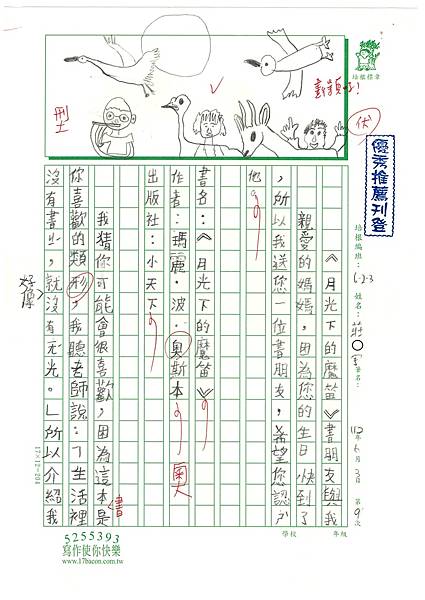 培根標章
戴穎子!
型
伏
優秀推薦刊登
培根編班: 6-2-3 姓名: 莊○ 筆名:
112年6月3日 第9次
《月光下的魔笛》書朋友與我
親愛的媽媽,因為您的生日快到了
,所以我送您一位書朋友,希望您認
他。
書名:《月光下的魔笛》
作者:瑪麗·波·奧斯本
奧
出版社:小天下
我猜你可能會很喜歡,因為這本是
書
你喜歡的類形,我聽老師說:「生活裡
沒有書,就沒有光。」所以介紹我
17×12=204
學校 年級
5255393
寫作使你快樂
www.17bacon.com.tw